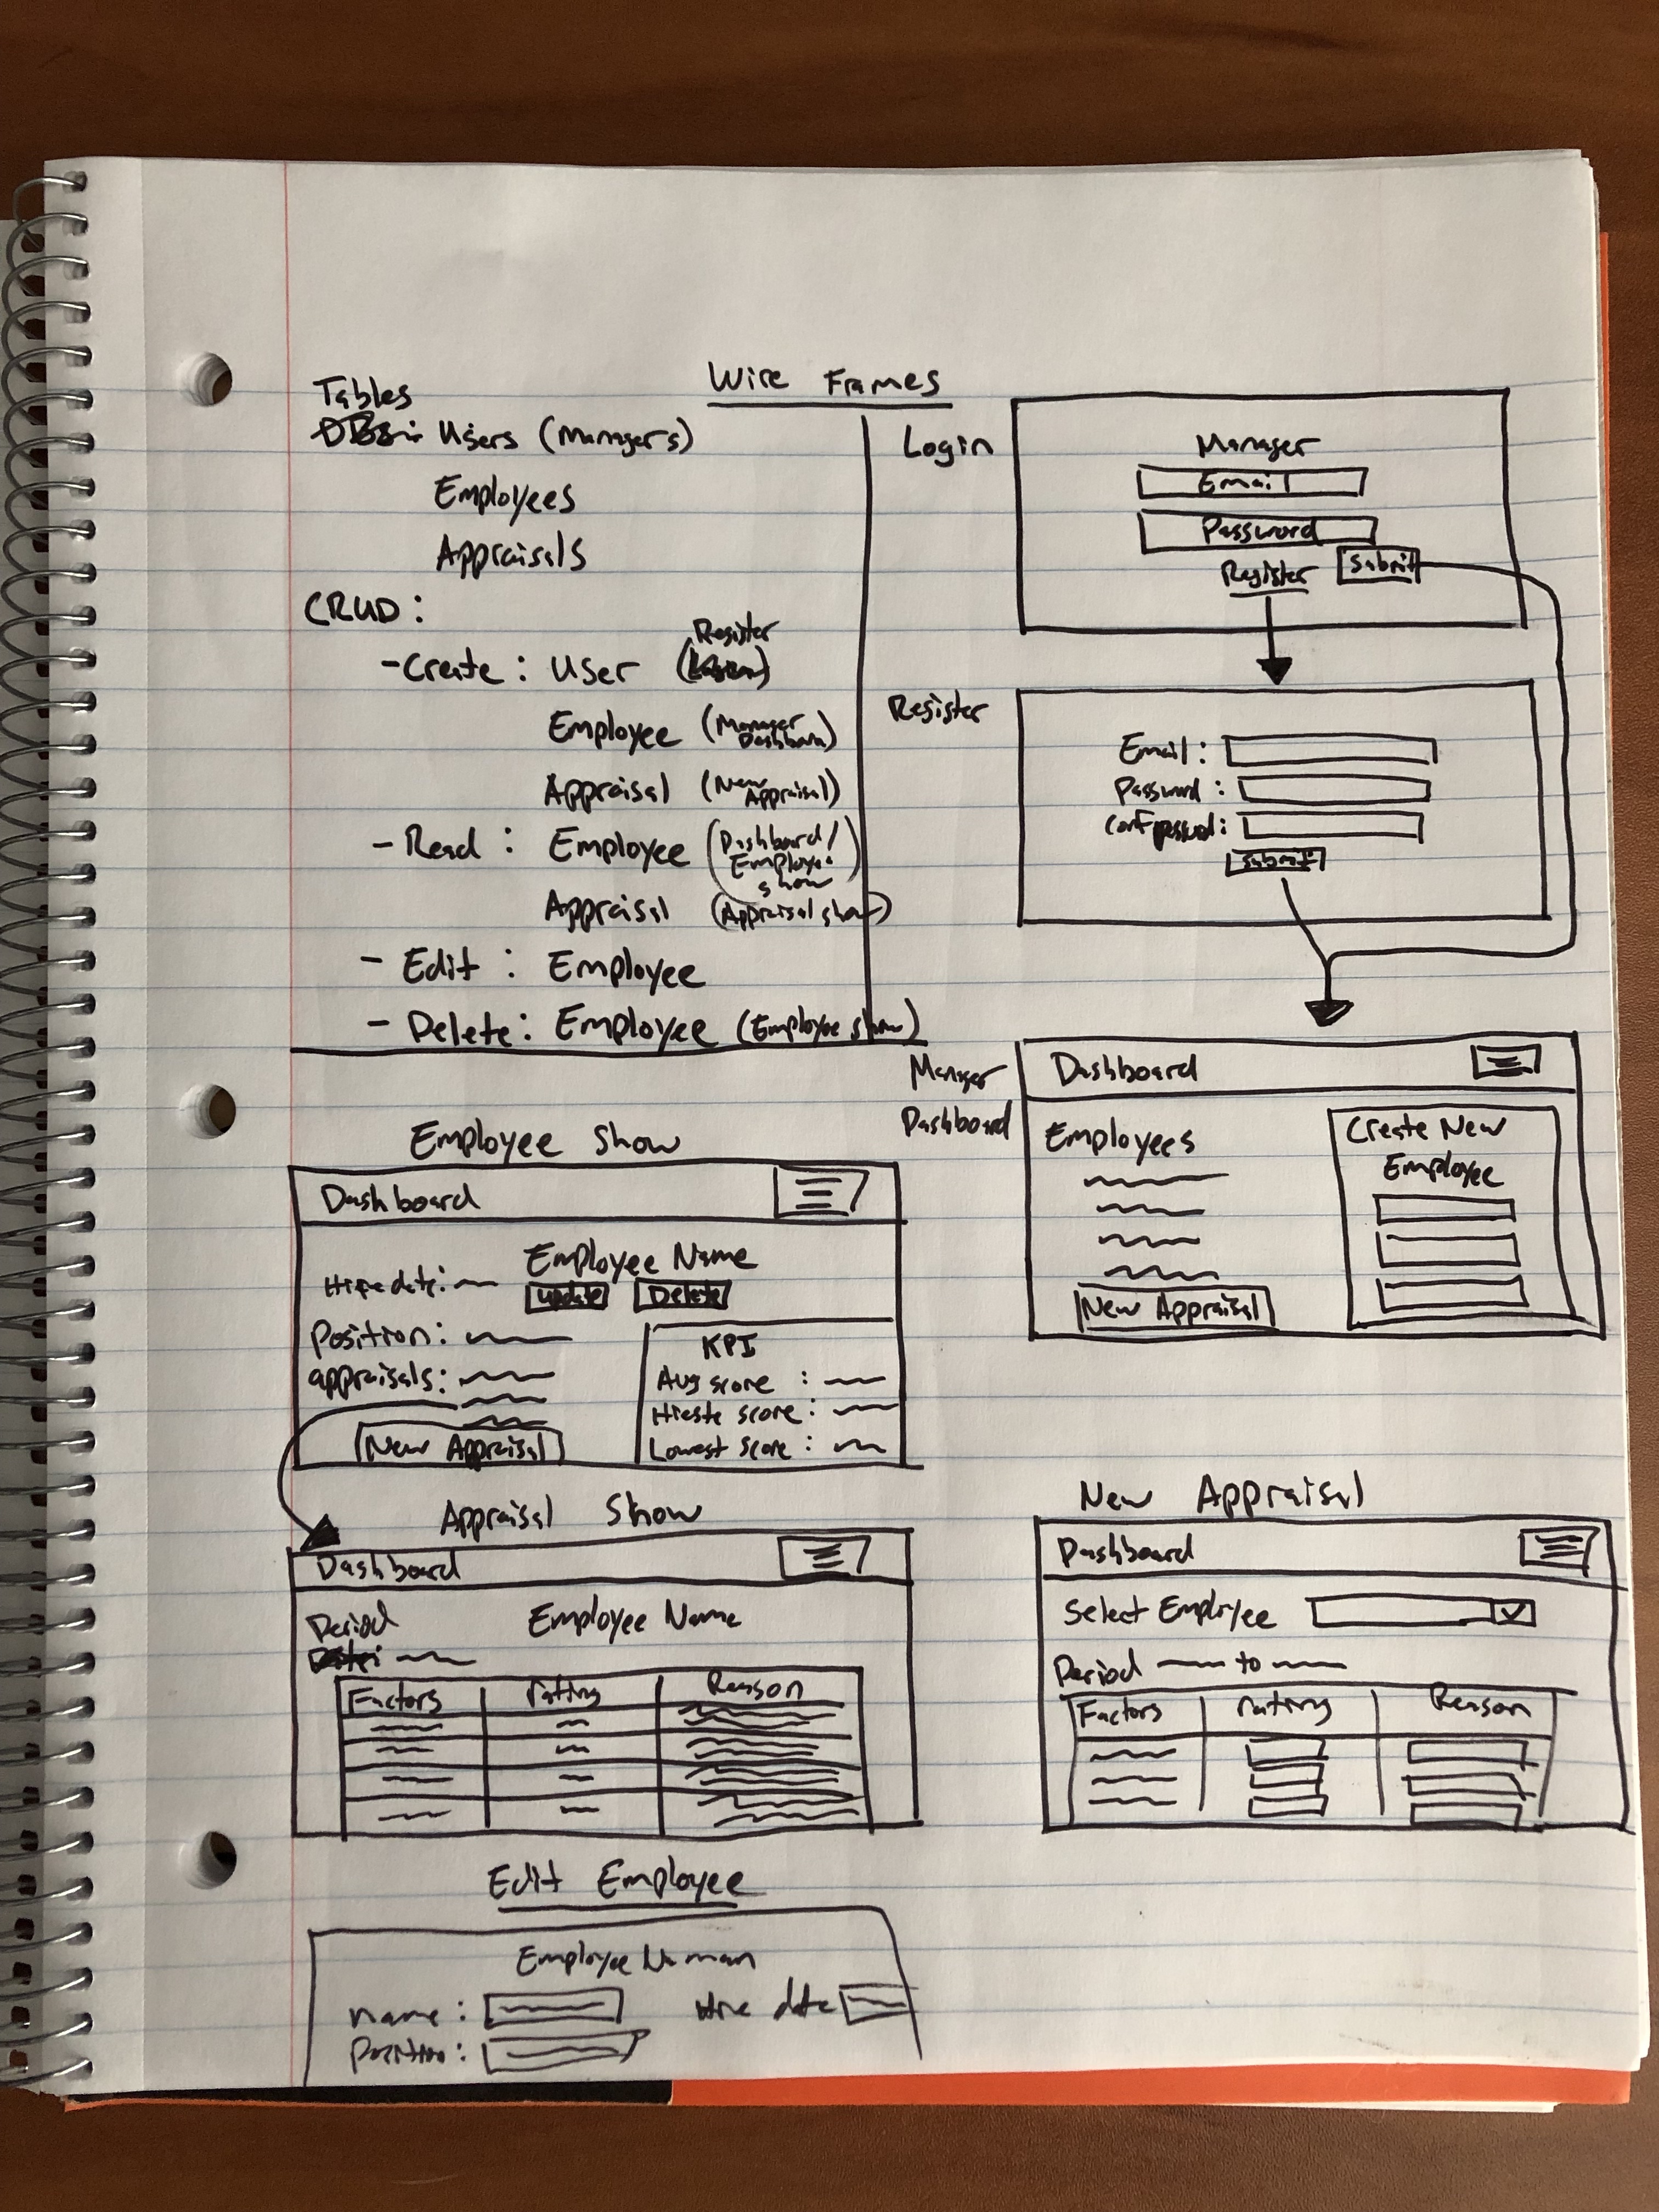 Wire Frames
Tables
Users (Managers)
Employees
Appraisals
CRUD:
Register
- Create: User
Employee (Manager Dashboard)
Appraisal (New Appraisal)
- Read: Employee (Dashboard/
Employee
show)
Appraisal (Appraisal show)
- Edit: Employee
- Delete: Employee (Employee show)
Login
Manager
Email
Password
Register Submit
Register
Email:
Password:
Conf passwd:
Submit
Manager
Dashboard
Dashboard
Employees
New Appraisal
Create New
Employee
Employee Show
Dashboard
Employee Name
Hire date:
Update Delete
Position:
appraisals:
New Appraisal
KPI
Avg score :
Hieste score :
Lowest score :
Appraisal Show
Dashboard
Period
Employee Name
Factors rating Reason
New Appraisal
Dashboard
Select Employee
Period to
Factors rating Reason
Edit Employee
Employee
name: Hire date
Position: